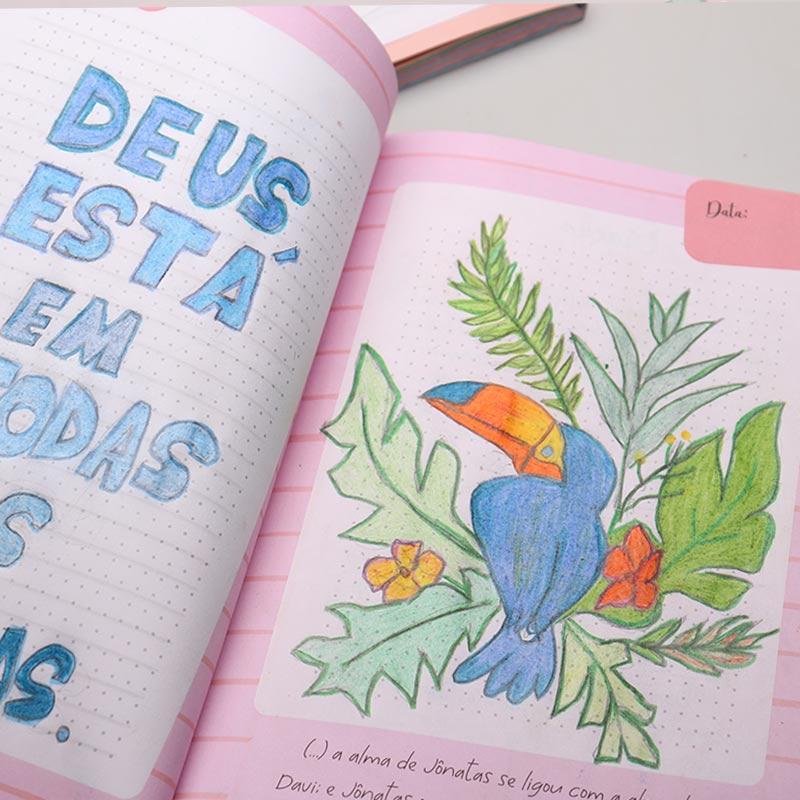 DEUS
ESTÁ
EM
TODAS
S
AS.
Data:
(...) a alma de Jônatas se ligou com a alma
Davi: e Jônatas